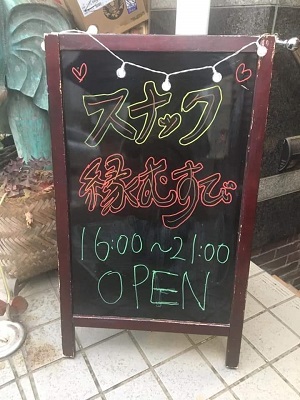 スナック
縁むすび
16:00〜21:00
OPEN